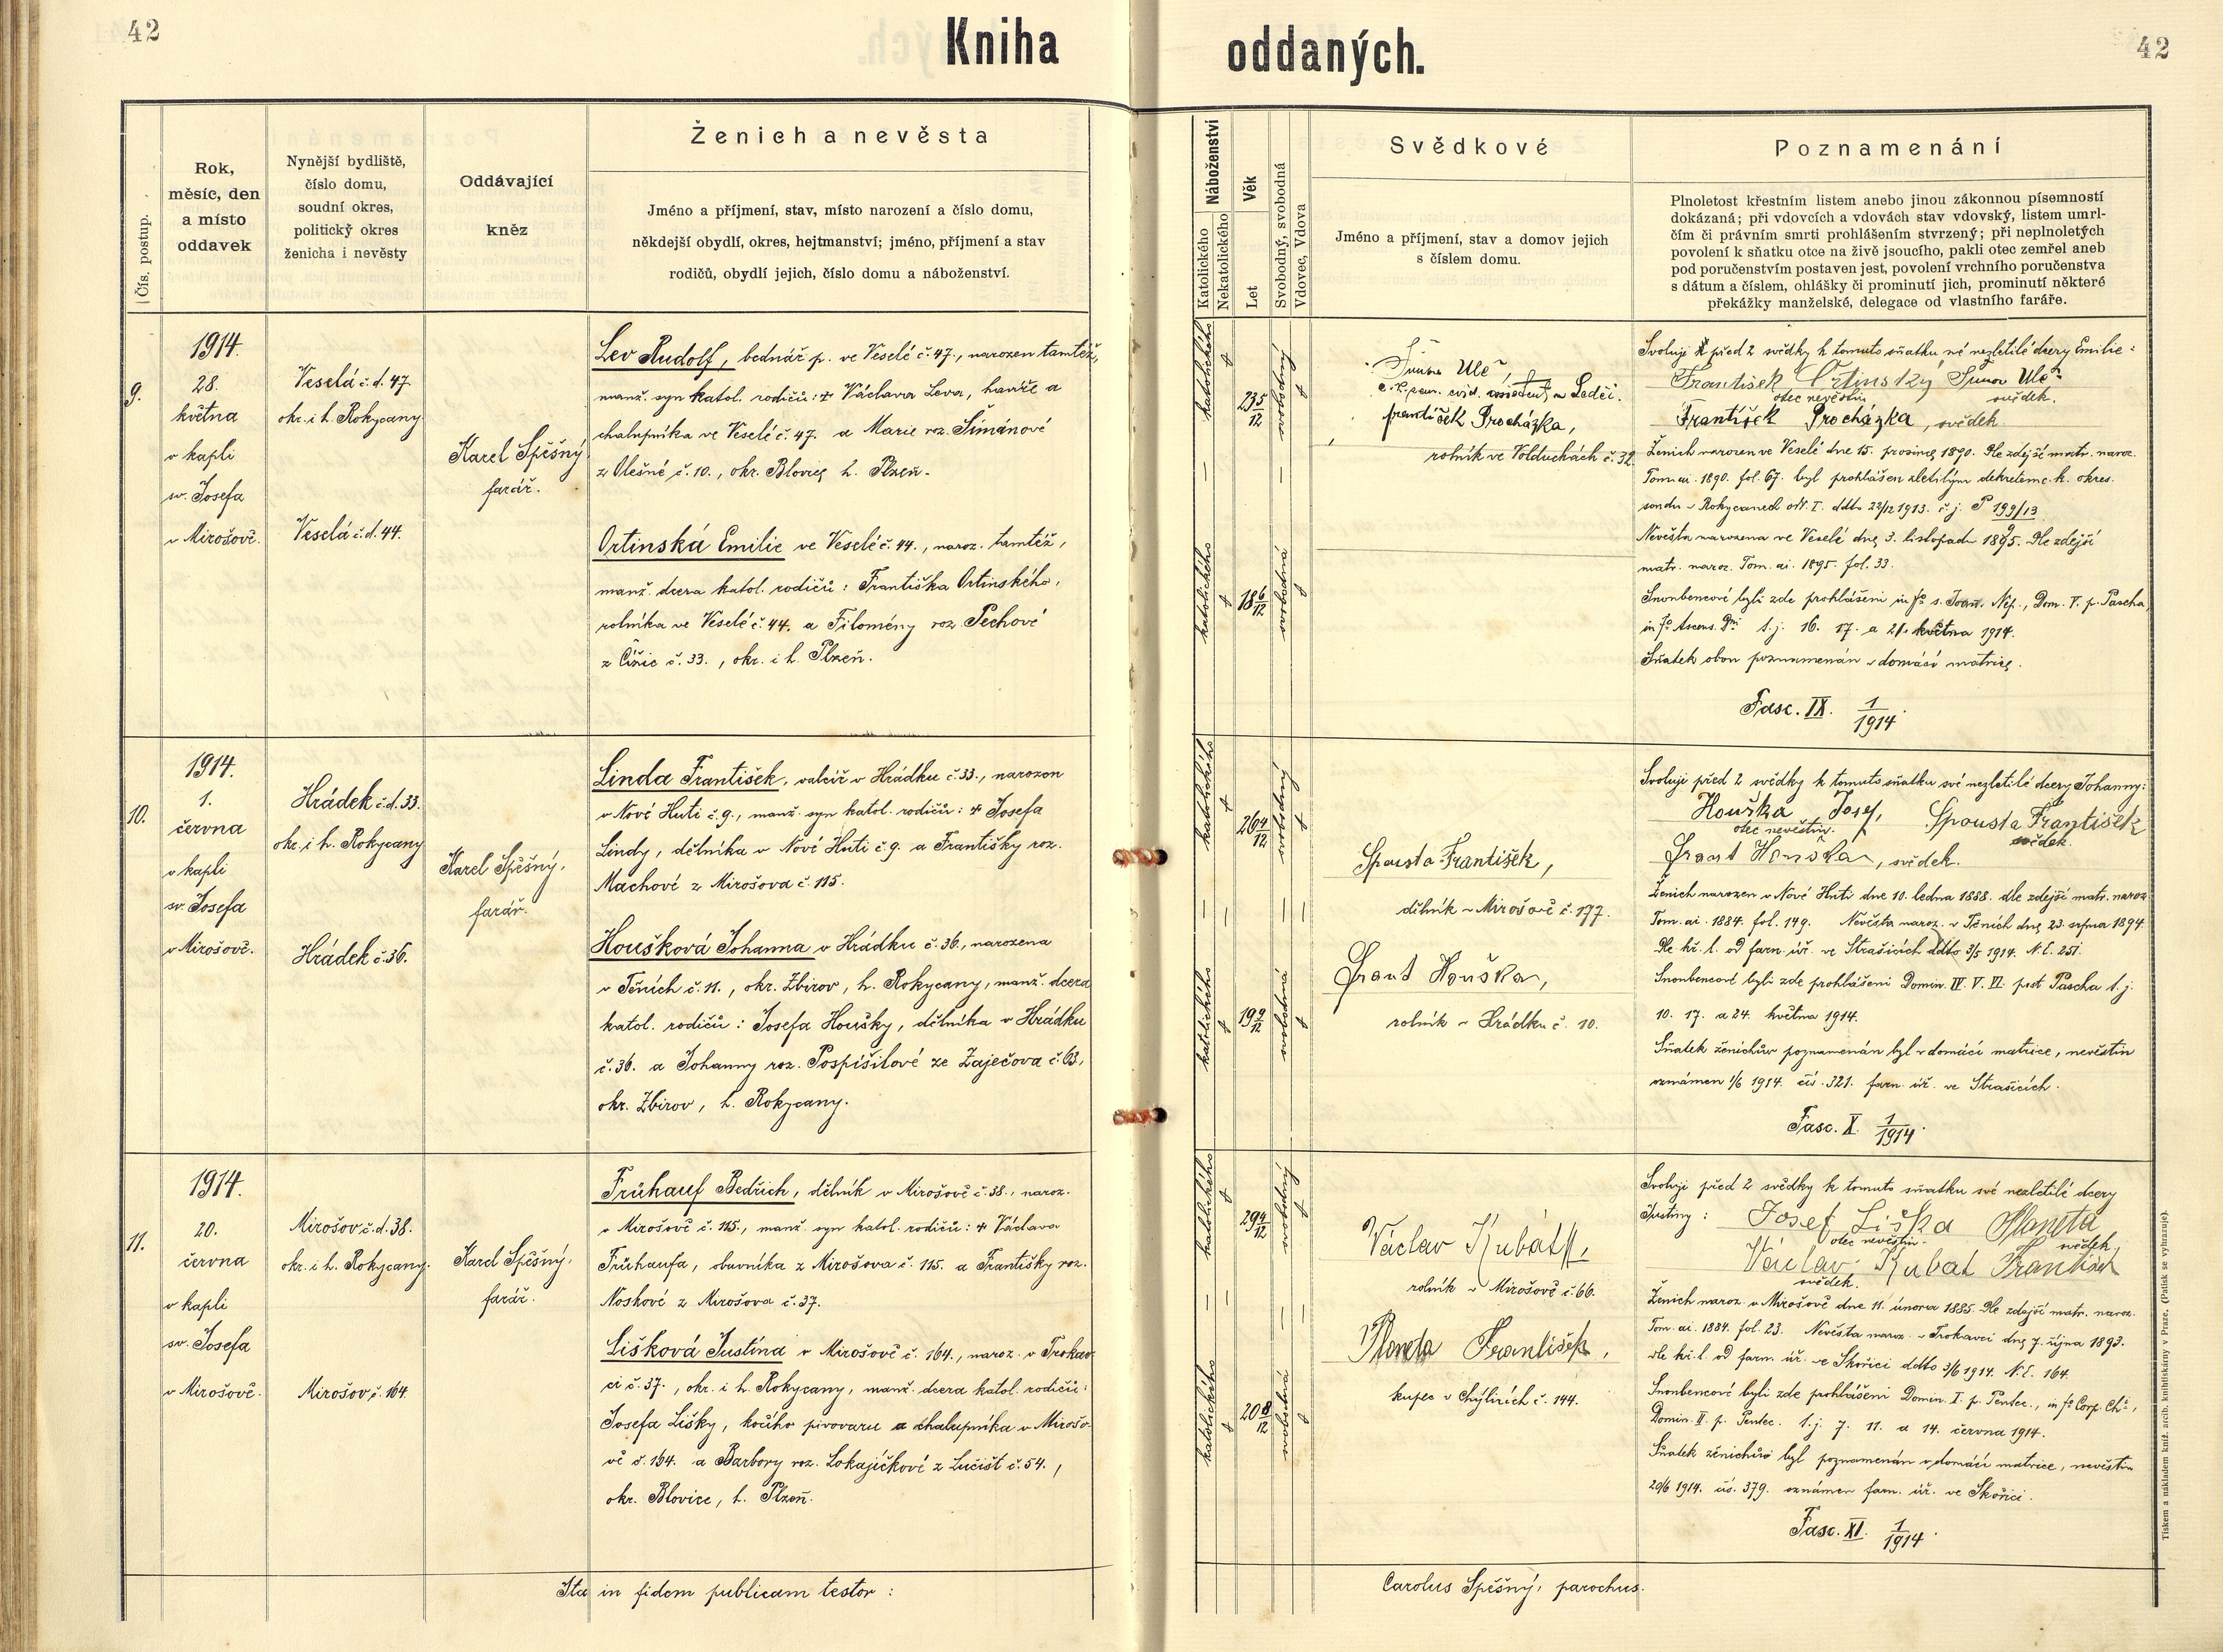 42
Kniha
oddaných.
42
Čís. postup.
Rok,
měsíc, den
a místo
oddavek
Nynější bydliště,
číslo domu,
soudní okres,
politický okres
ženicha i nevěsty
Oddávající
kněz
Ženich a nevěsta
Jméno a příjmení, stav, místo narození a číslo domu,
někdejší obydlí, okres, hejtmanství; jméno, příjmení a stav
rodičů, obydlí jejich, číslo domu a náboženství.
Náboženství
Katolického
Nekatolického
Věk
Let
Svobodný, svobodná
Vdovec, Vdova
Svědkové
Jméno a příjmení, stav a domov jejich
s číslem domu.
Poznamenání
Plnoletost křestním listem anebo jinou zákonnou písemností
dokázaná; při vdovcích a vdovách stav vdovský, listem umrl-
čím či právním smrti prohlášením stvrzený; při neplnoletých
povolení k sňatku otce na živě jsoucího, pakli otec zemřel aneb
pod poručenstvím postaven jest, povolení vrchního poručenstva
s dátum a číslem, ohlášky či prominutí jich, prominutí některé
překážky manželské, delegace od vlastního faráře.
9.
1914.
28.
května
v kapli
sv. Josefa
v Mirošově.
Veselá č. d. 47.
okr. i h. Rokycany
Veselá č. d. 44.
Karel Spěšný
farář.
Lev Rudolf, bednář p. ve Veselé č. 47., narozen tamtéž,
manž. syn katol. rodičů: Václava Leva, havíře a
chalupníka ve Veselé č. 47. a Marie roz. Šimánové
z Olešné č. 10., okr. Blovice, h. Plzeň.
Ortinská Emilie ve Veselé č. 44., naroz. tamtéž,
manž. dcera katol. rodičů: Františka Ortinského,
rolníka ve Veselé č. 44. a Filomény roz. Pechové
z Čižic č. 33., okr. i h. Plzeň.
katolického
23 5/12
svobodný
katolického
18 6/12
svobodná
František Procházka,
rolník ve Volduchách č. 32.
Svoluji před 2 svědky k tomuto sňatku mé nezletilé dcery Emilie:
František Ortinský
otec nevěstin
svědek.
František Procházka, svědek
Ženich narozen ve Veselé dne 15. prosince 1890. Dle zdejší matr. naroz.
Tom. ai. 1890. fol. 67. byl prohlášen zletilým dekretem c. k. okres.
soudu v Rokycanech odd. I. ddto 22/12 1913. č. j. P 199/13
9
Nevěsta narozena ve Veselé dne 3. listopadu 1895. Dle zdejší
matr. naroz. Tom. ai. 1895. fol. 33.
Snoubencové byli zde prohlášeni in fo s. Joan. Nep., Dom. V. p. Pascha,
in fo Ascens. Dni t. j. 16. 17. a 21. května 1914.
Sňatek obou poznamenán v domácí matrice.
Fasc. IX. 1/1914.
10.
1914.
1.
června
v kapli
sv. Josefa
v Mirošově.
Hrádek č. d. 33.
okr. i h. Rokycany
Hrádek č. 36.
Karel Spěšný,
farář.
Linda František, valcíř v Hrádku č. 33., narozen
v Nové Huti č. 9., manž. syn katol. rodičů: + Josefa
Lindy, dělníka v Nové Huti č. 9. a Františky roz.
Machové z Mirošova č. 115.
Houšková Johanna v Hrádku č. 36., narozena
v Těních č. 11., okr. Zbirov, h. Rokycany, manž. dcera
katol. rodičů: Josefa Houšky, dělníka v Hrádku
č. 36. a Johanny roz. Pospíšilové ze Zaječova č. 63,
okr. Zbirov, h. Rokycany.
katolického
26 4/12
svobodný
katolického
19 9/12
svobodná
Spousta František,
dělník v Mirošově č. 177.
Houška,
rolník v Hrádku č. 10.
Svoluji před 2 svědky k tomuto sňatku své nezletilé dcery Johanny:
Houška Josef, Spousta František
otec nevěstin. svědek.
Houška, svědek.
Ženich narozen v Nové Huti dne 10. ledna 1888. dle zdejší matr. naroz.
Tom. ai. 1884. fol. 149. Nevěsta naroz. v Těních dne 23. srpna 1894.
Dle kř. l. od farn. úř. ve Strašicích ddto 3/5 1914. N. E. 251.
Snoubencové byli zde prohlášeni Domin. IV. V. VI. post Pascha t. j.
10. 17. a 24. května 1914.
Sňatek ženichův poznamenán byl v domácí matrice, nevěstin
oznámen 1/6 1914. čís. 321. farn. úř. ve Strašicích.
Fasc. X. 1/1914.
11.
1914.
20.
června
v kapli
sv. Josefa
v Mirošově.
Mirošov č. d. 38.
okr. i h. Rokycany.
Mirošov č. 164
Karel Spěšný,
farář.
Frühauf Bedřich, dělník v Mirošově č. 38., naroz.
v Mirošově č. 115., manž. syn katol. rodičů: + Václava
Frühaufa, obuvníka z Mirošova č. 115. a Františky roz.
Noskové z Mirošova č. 37.
Lišková Justina v Mirošově č. 164., naroz. v Trokav-
ci č. 37., okr. i h. Rokycany, manž. dcera katol. rodičů:
Josefa Lišky, kočího pivovaru a chalupníka v Mirošo-
vě č. 164. a Barbory roz. Lokajíčkové z Lučišt č. 54.,
okr. Blovice, h. Plzeň.
katolického
29 4/12
svobodný
katolického
20 8/12
svobodná
Václav Kubát,
rolník v Mirošově č. 66.
Planeta František,
kupec v č. 144.
Svoluji před 2 svědky k tomuto sňatku své nezletilé dcery
Justiny: Josef Liška Planeta
otec nevěstin. svědek,
Václav Kubat František
svědek.
Ženich naroz. v Mirošově dne 11. února 1885. Dle zdejší matr. naroz.
Tom. ai. 1884. fol. 23. Nevěsta naroz. v Trokavci dne 7. října 1893.
dle kř. l. od farn. úř. ve Skořici ddto 3/6 1914. N. E. 164.
Snoubencové byli zde prohlášeni Domin. I. p. Pentec., in fo Corp. Chi,
Domin. II. p. Pentec. t. j. 7. 11. a 14. června 1914.
Sňatek ženichův byl poznamenán v domácí matrice, nevěstin
20/6 1914. čís. 379. oznámen farn. úř. ve Skořici.
Fasc. XI. 1/1914.
Ita in fidem publicam testor:
Carolus Spěšný, parochus.
Tiskem a nákladem kníž. arcib. knihtiskárny v Praze. (Patisk se vyhrazuje).